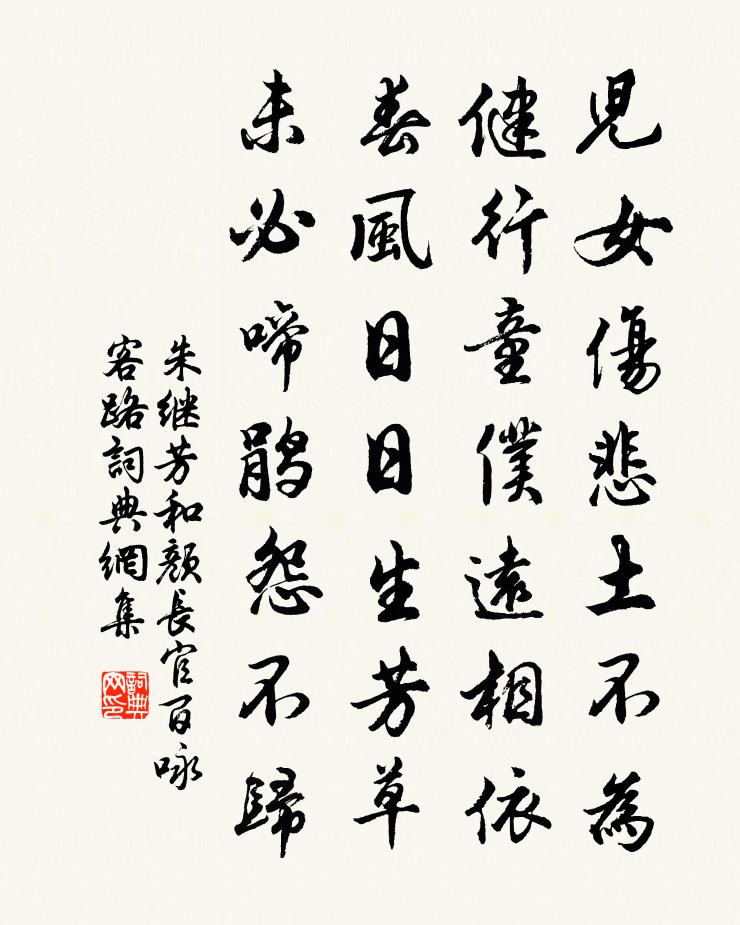 兒女傷悲土不為
健行童僕遠相依
春風日日生芳草
未必啼鵑怨不歸
朱继芳和顏長官百咏
客路詞典網集
詞典网印